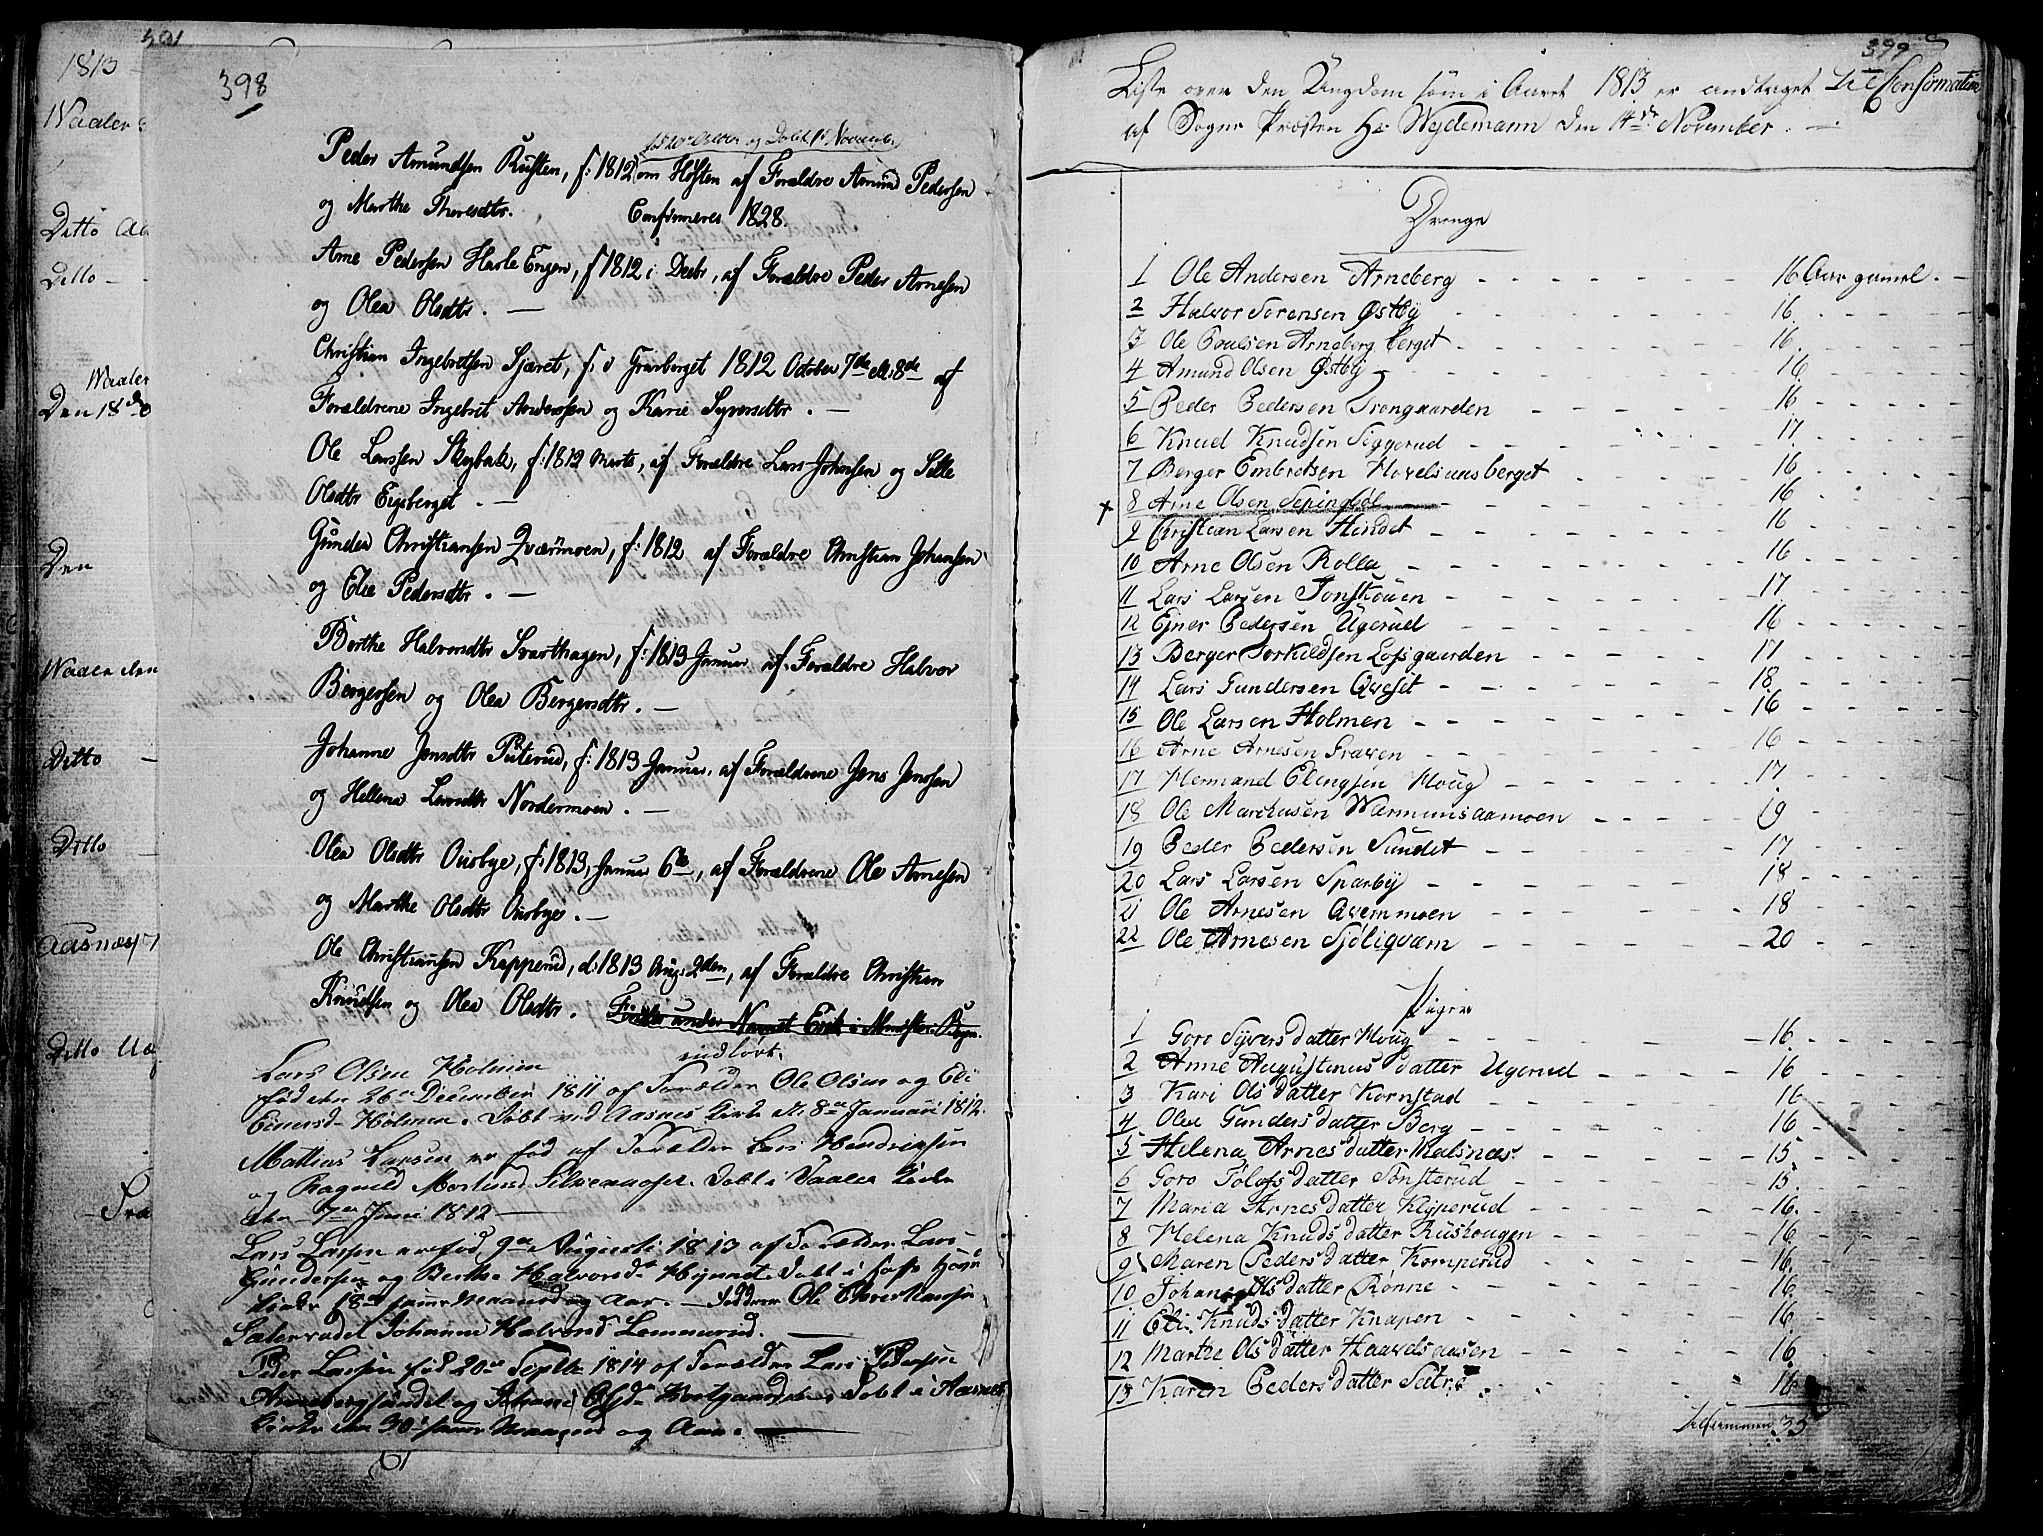 501
1813
Waaler
Ditto Aa
Ditto
Waaler
Den 18de
Den
Waaler den
Ditto
Ditto
Aasnæs
Ditto
398
Peder Amundsen Rusten, f: 1812 om Høsten af Forældre Amund Pedersen
og Marthe Thoresdtr. Confirmeres 1828.
Arne Pedersen Harle Engen, f 1812 i Decbr, af Forældre Peder Arnesen
og Olea Olsdtr. —
Christian Ingebretsen Sjæret, f. i Graaberget 1812 October 7de ell: 8de af
Forældrene Ingebret Andersen og Karie Syversdtr. —
Ole Larssen Skybak, f: 1812 Marts, af Forældre Lars Johnsen og Sille
Olsdtr Eigsberget. —
Gunder Christiansen Qværnmoen, f: 1812 af Forældre Christian Johansen
og Elie Pedersdtr. —
Berthe Halvorsdtr Svarthagen, f: 1813 Januar af Forældre Halvor
Bergersen og Olea Bergersdtr. —
Johanne Jensdtr Puterud, f: 1813 Januar, af Forældrene Jens Jensen
og Hellena Larsdtr Nordermoen. —
Olea Olsdtr Ousbye, f: 1813, Januar 6te, af Forældrene Ole Arnesen
og Marthe Olsdtr Ousbye. —
Ole Christiansen Kapperud, d: 1813 Aug: 2den, af Forældre Christian
Knudsen og Olea Olsdtr. Findes under Navnet Erik i Minister: Bogen
indført.
Lars Olsen Holmen
fød den 26de December 1811 af Forældre Ole Olsen og Eli
Einersd Holmen. Døbt ved Aasnes Kirke d. 8de Januari 1812.
Mathias Larsen er fød af Forældre Lars Hendrichsen
og Ragnild Mortensd Døbt i Vaaler Kirke
den 7de Juni 1812 —
Lars Larsen er fød 9de Augusti 1813 af Forældre Lars
Gundersen og Berthe Halvorsdt Døbt i Hof
Kirke 18de samme Maaned og Aar. — Ole Christiansen
Johanne Halvorsd —
Peder Larsen fød 20de Septbr 1814 af Forældre Lars Pedersen
Arnebergsundet og Johane Olsd Døbt i Aasnes
Kirke den 30te samme Maaned og Aar. —
399
Liste over den Ungdom som i Aaret 1813 er antaget til Confirmation
af Sogne Præsten Hr Weydemann den 14de November. —
Drenge
1 Ole Andersen Arneberg - 16 Aar gamel.
2 Halvor Sørensen Østby - 16
3 Ole Poulsen Arneberg berget - 16
4 Amund Olsen Østby - 16
5 Peder Pedersen Trongaarden - 16
6 Knud Knudsen Seggerud - 17
7 Berger Embretsen Hovelsaasberget - 16
8 Arne Olsen - 16
9 Christian Larsen Hindet - 16
10 Arne Olsen Rolla - 16
11 Lars Larsen Tonskouen - 17
12 Ejner Pedersen Ugerud - 16
13 Berger Torkildsen Lofsgaarden - 17
14 Lars Gundersen Qveset - 18
15 Ole Larsen Holmen - 16
16 Arne Arnesen Graven - 16
17 Hermand Elingsen Houg - 17
18 Ole Marchusen Warmunsaamoen - 19
19 Peder Pedersen Sundet - 17
20 Lars Larsen Sparby - 18
21 Ole Arnesen Qvernmoen - 18
22 Ole Arnesen Sjøliqvarn - 20
Piger
1 Goro Syvers datter Houg - 16
2 Anne Augustinus datter Ugerud - 16
3 Kari Ols datter Kornstad - 16
4 Olea Gunders datter Berg - 16
5 Helena Arnes datter Malsnes - 15
6 Goro Tolofs datter Tonsterud - 15
7 Maria Arnes datter Kyperud - 16
8 Helena Knuds datter Rushougen - 16
9 Maren Peders datter Komperud - 16
10 Johane Ols datter Rønne - 16
11 Eli Knuds datter Knapen - 16
12 Marthe Ols datter Haavdsaasen - 16
13 Karen Peders datter Sætre - 16
Tilsammen 35